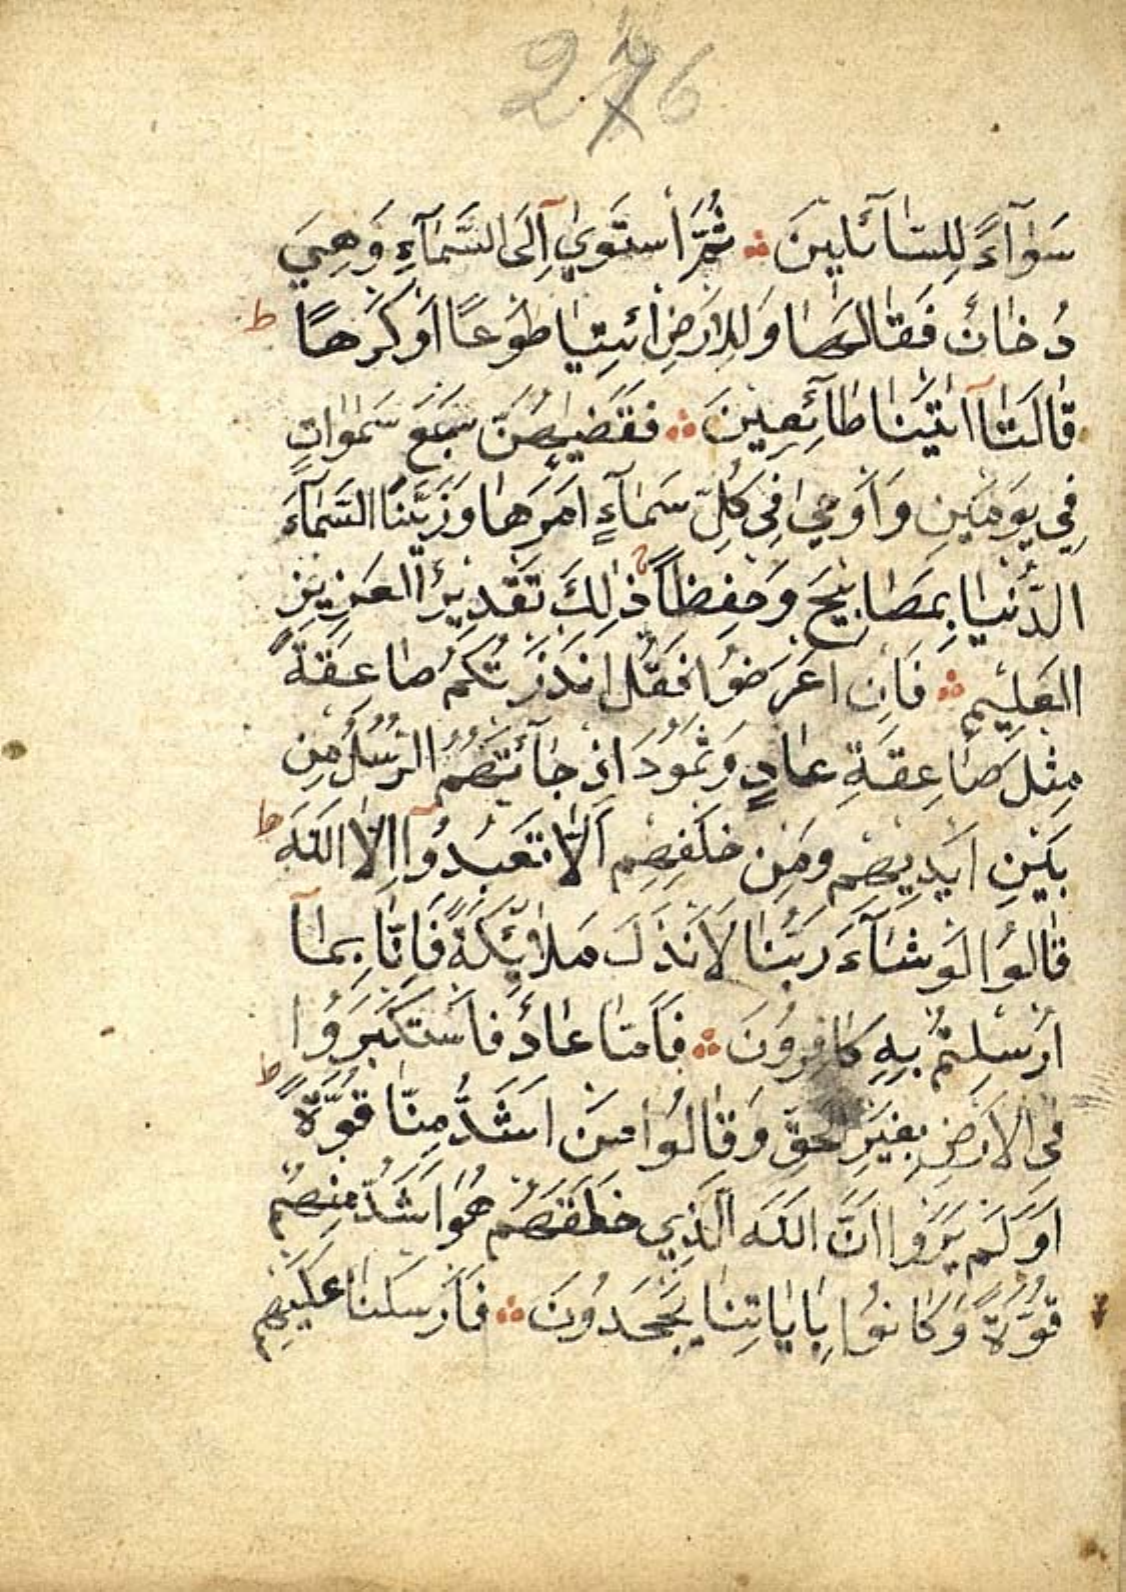 276
سَوَآءً لِلسَّآئِلينَ ۞ ثُمَّ أستَوٰي اِلَى السَّمَآءِ وَهِىَ
دُخَانٌ فَقَالَ لَهَا وَلِلاَرضِ ائتِيَا طَوعًا اَو كَرهًا ط
قَالَتَآ اَتَينَا طَآئِعِينَ ۞ فقَضٰيهُنَّ سَبعَ سَمٰوَاتٍ
فِي يَومَينِ وَاَوحٰي فِي كُلِّ سَمَآءٍ اَمرَهَا وَزَيَّنَّا السَّمَآءَ
الدُّنيَا بِمَصَابِيحَ وَحِفظاً ذٰلِكَ تَقدِيرُ العَزِيزِ
العَلِيمِ ۞ فَاِن اَعرَضُوا فَقُل اَنذَرتُكُم صَاعِقَةً
مِثلَ صَاعِقَةِ عَادٍ وَثَمُودَ اِذ جَآئَتهُمُ الرُّسُلُ مِن
بَينِ اَيدِيهِم وَمِن خَلفِهِم اَلَّا تَعبُدُوآ اِلَّا اللّٰهَ ط
قَالُوا لَو شَآءَ رَبُّنَا لَاَنذَلَ مَلَائِكَةً فَاِنَّا بِمَآ
اُرسِلتُم بِهِ كَافِرُونَ ۞ فَاَمَّا عَادٌ فَاستَكبَرُوا
فِي الاَرضِ بِغَيرِ الحَقِّ وَقَالُوا مَن اَشَدُّ مِنَّا قُوَّةً ط
اَوَلَم يَرَوا اَنَّ اللّٰهَ الَّذِي خَلَقَهُم هُوَ اَشَدُّ مِنهُم
قُوَّةً وَكَانُوا بِاٰيَاتِنَا يَجحَدُونَ ۞ فَاَرسَلنَا عَلَيهِم